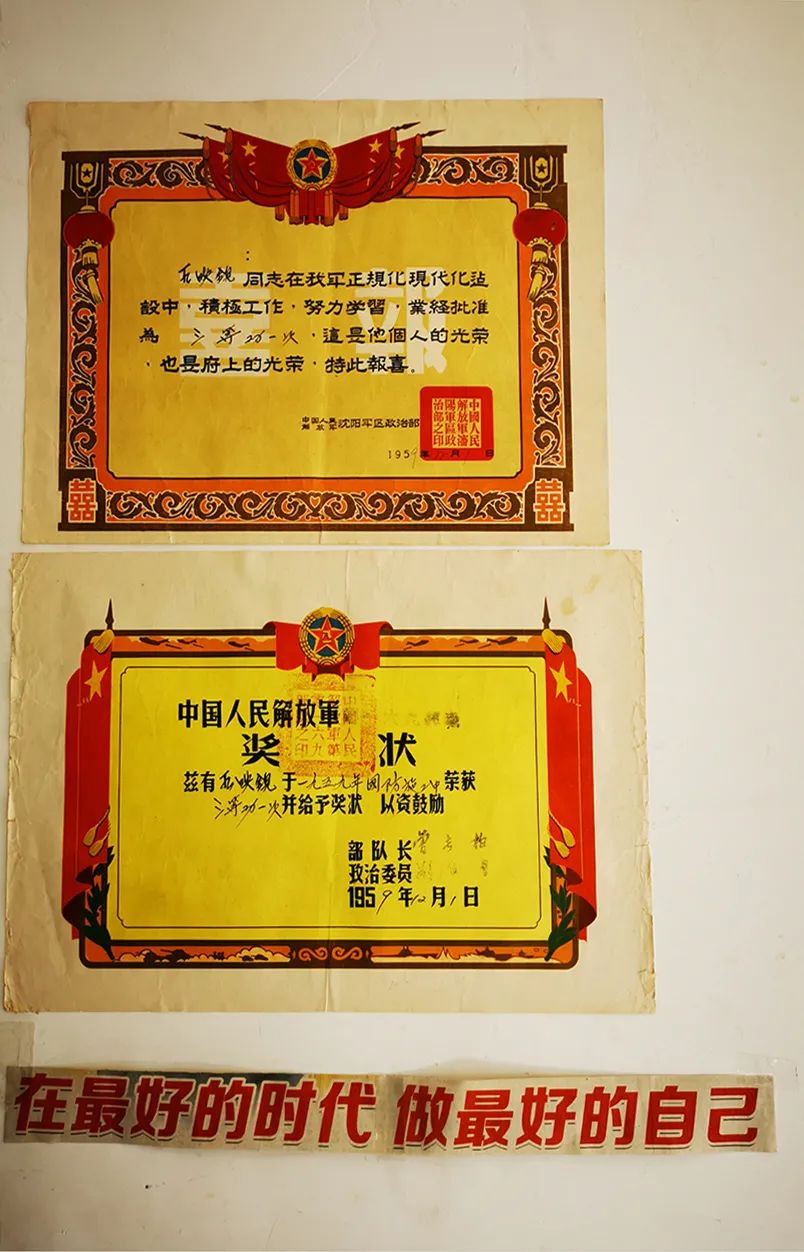 喜報
：
同志在我军正規化現代化建
設中，積極工作，努力学習，業経批准
為 三等功一次，這是他個人的光荣
，也是府上的光荣，特此報喜。
中国人民
解放军 沈阳军区政治部
中國人民
解放軍瀋
陽軍區政
治部之印
1959年12月1日
中国人民解放軍
奖状
兹有 于一九五九年國防施工中荣获
三等功一次并给予奖状 以资鼓励
部队长
政治委员
1959年12月1日
在最好的时代 做最好的自己